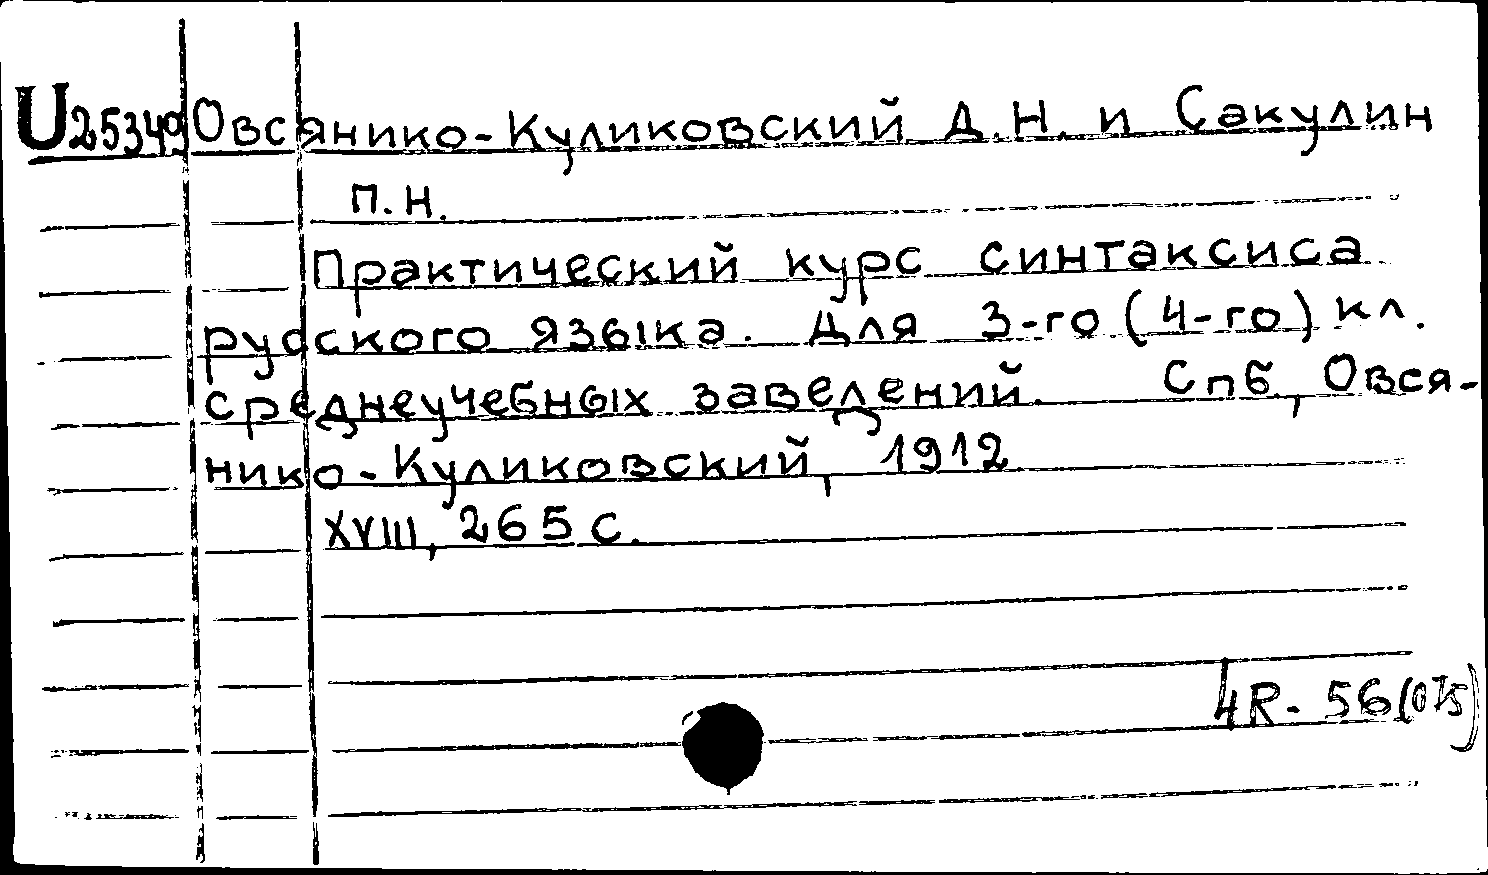 U25349 Овсянико-Куликовский Д.Н. и Сакулин
П.Н.
Практический курс синтаксиса
русского языка. Для 3-го (4-го) кл.
среднеучебных заведений. Спб., Овся-
нико-Куликовский, 1912
XVIII, 265 с.
4R-56(075)